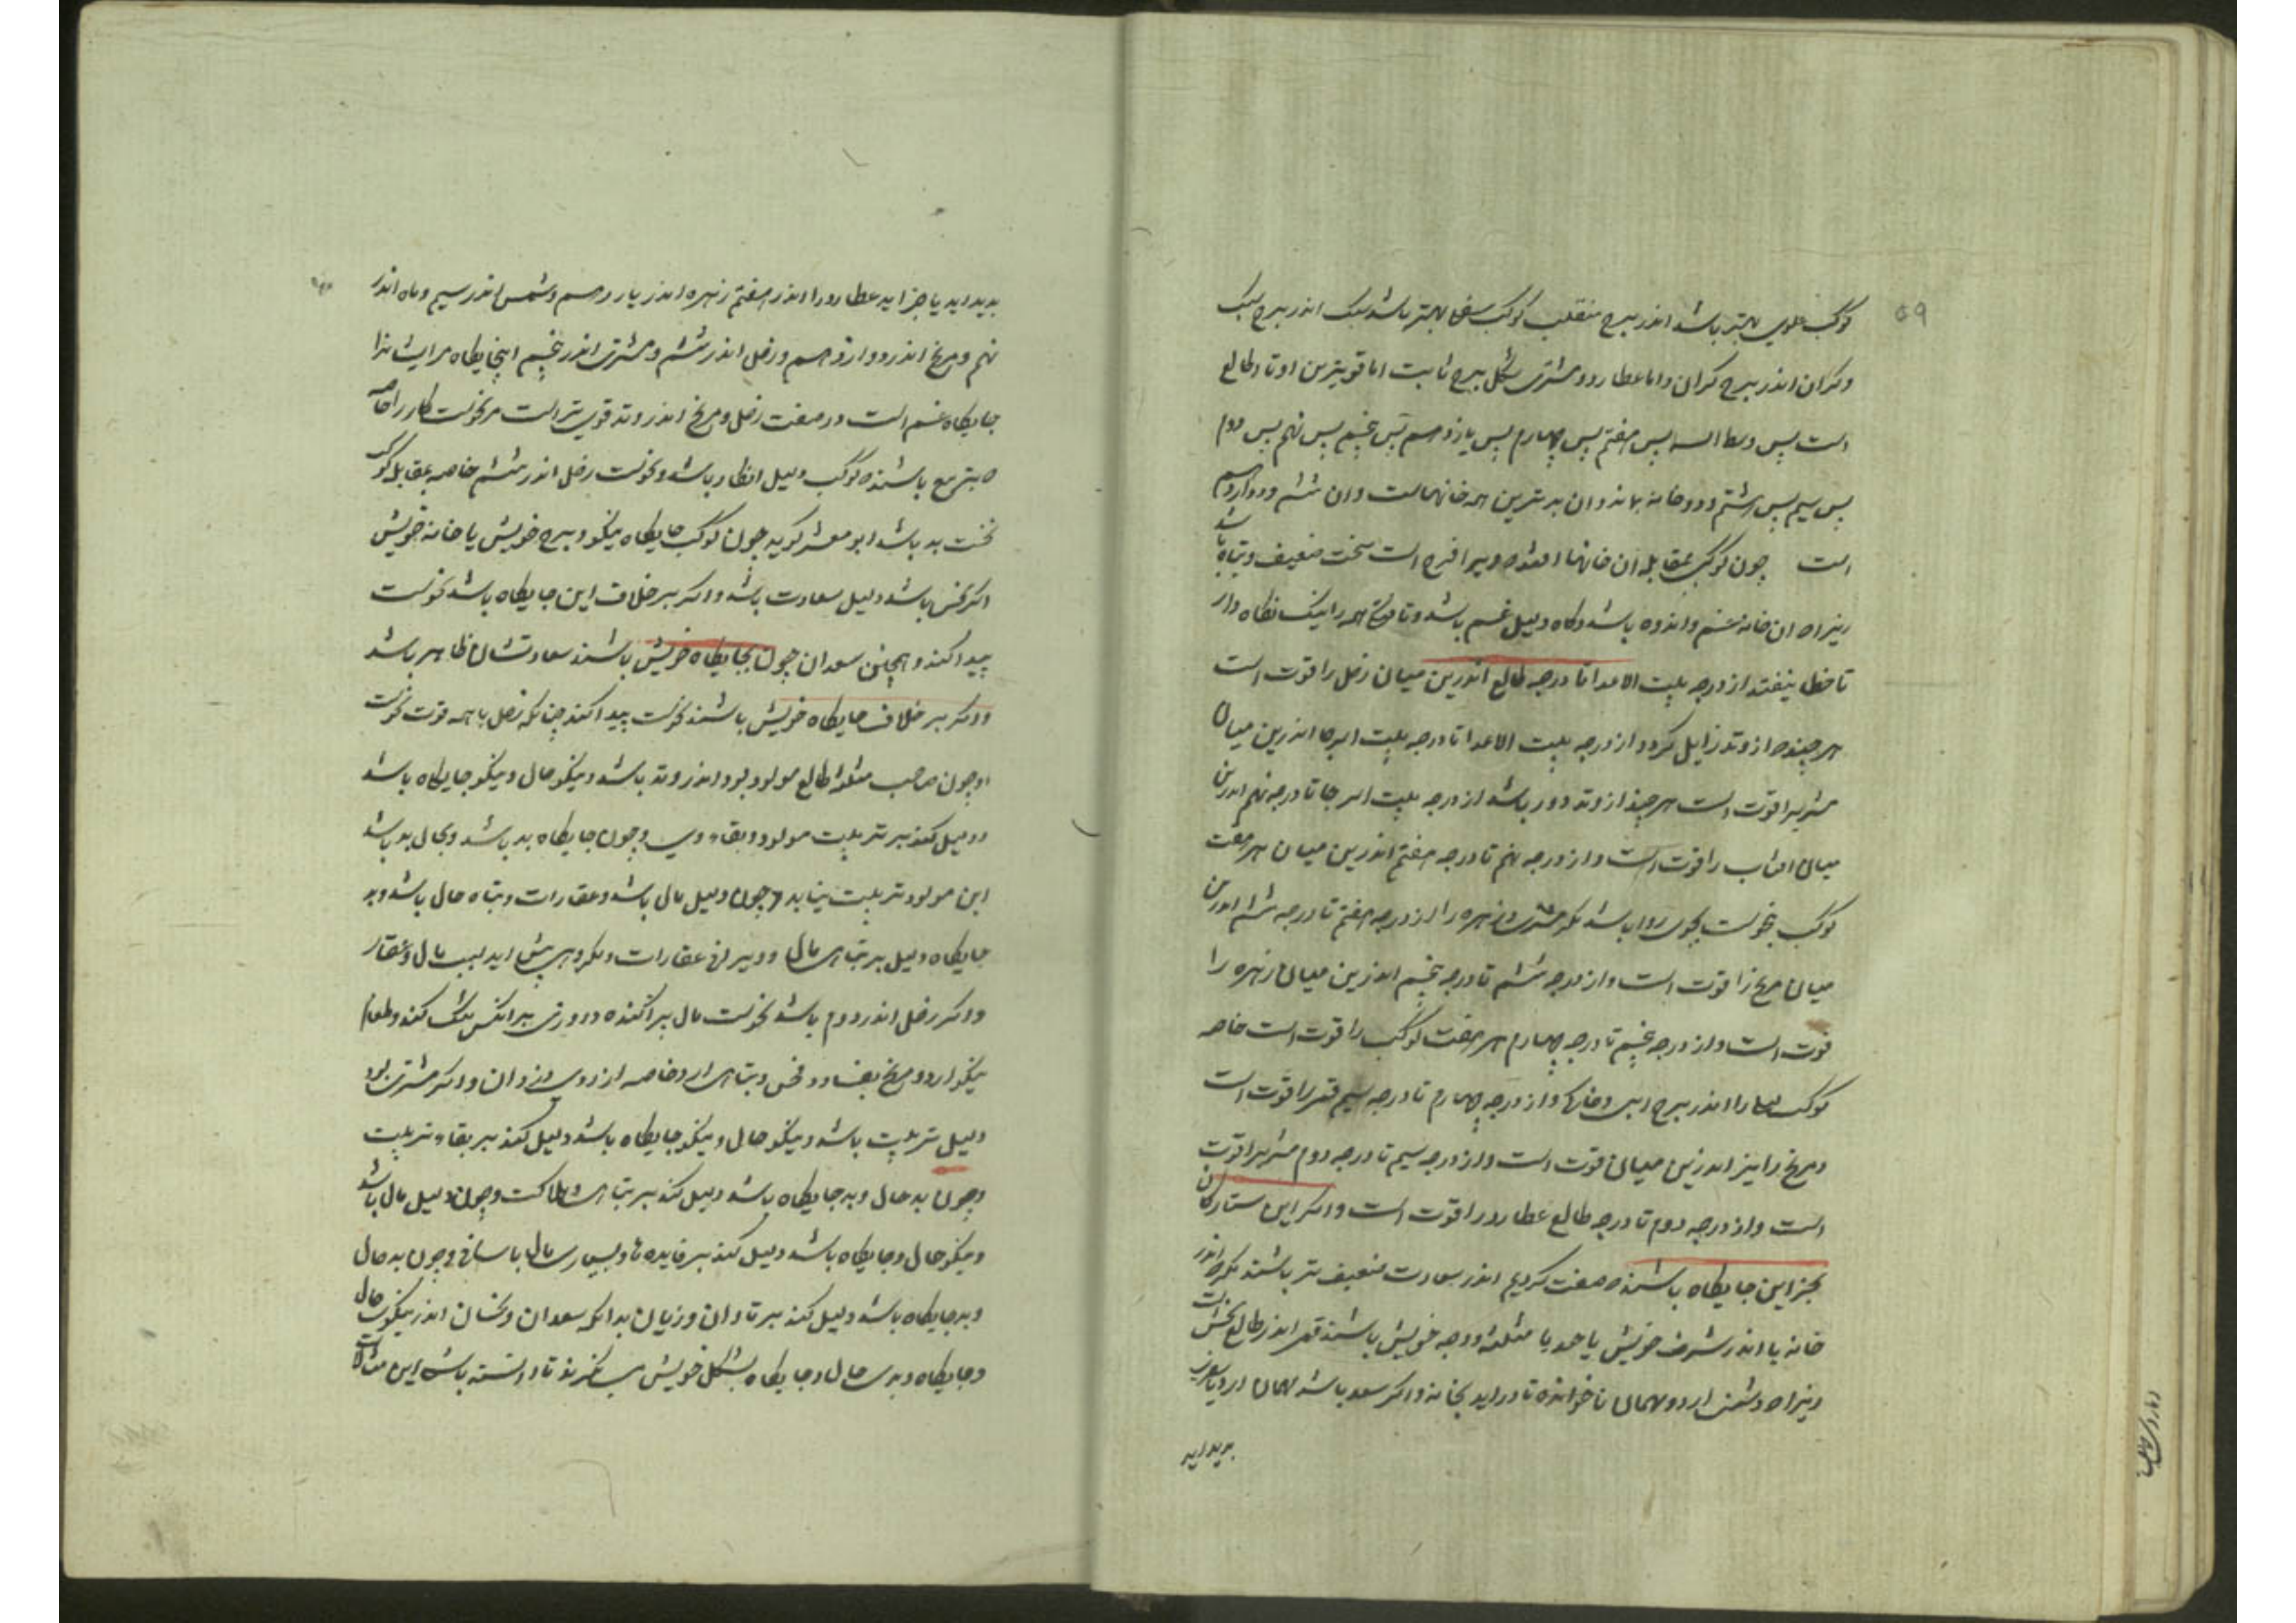 ۵۹
کوکب علوی بهتر باشد اندر برج منقلب کوکب سفلی بهتر باشد سبک اندر برج سبک
وکران اندر برج کران واما عطارد ومشتری بشکل برج ثابت اما قویترین اوتاد طالع
است پس وسط السما پس هفتم پس چهارم پس یازدهم پس پنجم پس نهم پس دوم
پس سیم پس هشتم ودو خانه بماند وان بدترین همه خانهاست وان ششم ودوازدهم
است چون کوکب بمقابله ان خانها افتد سخت ضعیف وتباه باشد
زیراه ان خانه غم واندوه باشد وکاه دلیل غم باشد وتا همه را نیک نکاه دار
تا خطا نیفتد از درجه بیت الاعدا تا درجه طالع اندرین میان زحل را قوت است
هر چند از وتد زایل کردد از درجه بیت الاعدا تا درجه بیت الرجا اندرین میان
مشتریرا قوت است هر چند از وتد دور باشد از درجه بیت الرجا تا درجه نهم اندرین
میان افتاب را قوت است واز درجه نهم تا درجه هفتم اندرین میان هر هفت
کوکب روا باشد مکر مشتری وزهره را از درجه هفتم تا درجه ششم اندرین
میان مریخ را قوت است واز درجه ششم تا درجه پنجم اندرین میان زهره را
قوت است واز درجه پنجم تا درجه چهارم هر هفت کوکب را قوت است خاصه
کوکب اندر برج ابی وخاکی واز درجه چهارم تا درجه سیم قمر را قوت است
ومریخ را نیز اندرین میان قوت است واز درجه سیم تا درجه دوم مشتریرا قوت
است واز درجه دوم تا درجه طالع عطارد را قوت است واکر این ستارکان
بجز این جایکاه باشند صفت کردیم اندر سعادت ضعیف تر باشند مکر اندر
خانه یا اندر شرف خویش یا حد یا مثلثه ووجه خویش باشند قمر اندر طالع نحس است
زیراه دشمن ارد ومهمان ناخوانده تا دراید بخانه واکر سعد باشد مهمان ارد
بدیداید
بدیداید یا جز اید عطارد را اندر هفتم زهره اندر یازدهم وشمس اندر سیم وماه اندر
نهم ومریخ اندر دوازدهم وزحل اندر ششم ومشتری اندر پنجم این جایکاه مر ایشانرا
جایکاه غم است ودر صفت زحل ومریخ اندر وتد قوی تر است مر نحوست کار را خاصه
بتربیع باشند کوکب دلیل باشد ونحوست زحل اندر ششم خاصه بمقابله کوکب
سخت بد باشد ابو معشر کوید چون کوکب جایکاه نیکو وبرج خویش یا خانه خویش
اکر نحس باشد دلیل سعادت باشد واکر بر خلاف این جایکاه باشد نحوست
پیدا کند وهمچنین سعدان چون بجایکاه خویش باشند سعادتشان ظاهر باشد
واکر بر خلاف جایکاه خویش باشند نحوست پیدا کنند چنانکه زحل با همه قوت نحوست
وچون صاحب مثلثه طالع مولود بود اندر وتد باشد ونیکو حال ونیکو جایکاه باشد
ودلیل کند بر تربیت مولود وبقاء وی وچون جایکاه بد باشد وبحال بد باشد
این مولود تربیت نیابد وچون دلیل مال باشد وعقارات وتباه حال باشد وبد
جایکاه دلیل بر تباهی مال وویرانی عقارات ومکروهی پیش اید بسبب مال وعقار
واکر زحل اندر دوم باشد نحوست مال پراکنده وروزی بر انکس تنک کند وطعام
نیکو ارد ومریخ وتباهی ارد خاصه از دزدان واکر مشتری بود
دلیل تربیت باشد ونیکو حال ونیکو جایکاه باشد دلیل کند بر بقاء تربیت
وچون بد حال وبد جایکاه باشد دلیل کند بر تباهی وهلاکت وچون دلیل مال باشد
ونیکو حال وجایکاه باشد دلیل کند بر فایده ها وبسیاری مال باسانی وچون بد حال
وبد جایکاه باشد دلیل کند بر تاوان وزیان بدانکه سعدان ونحسان اندر نیکویی حال
وجایکاه وبدی حال وجایکاه بشکل خویش می نکرند تا دانسته باشی این